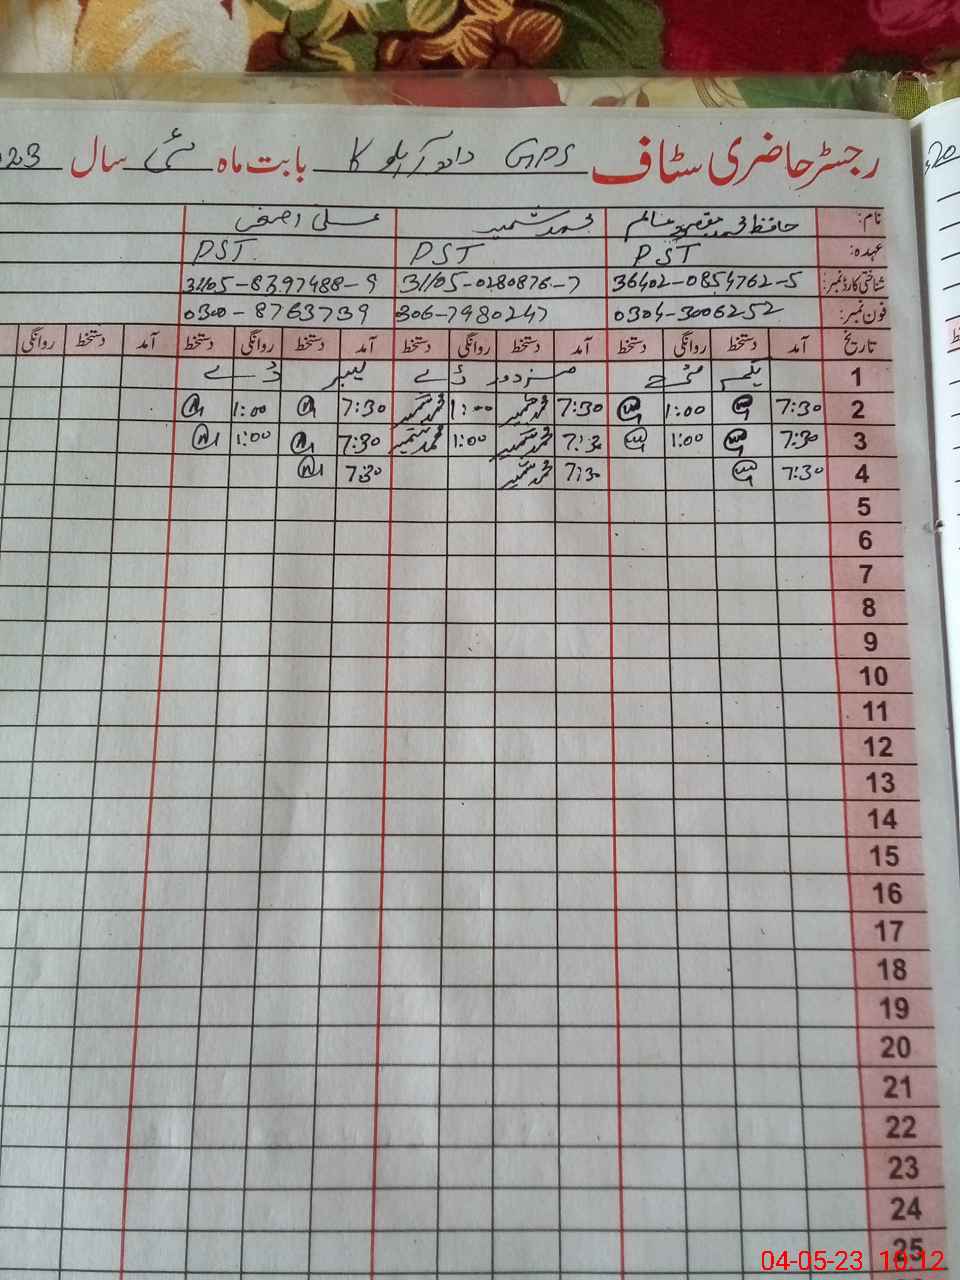 رجسٹر حاضری سٹاف GPS بابت ماہ مئی سال 023
20
نام: حافظ محمد محمد علی اصغر
عہدہ: PST PST PST
شناختی کارڈ نمبر: 36402-0854762-5 31105-0280876-7 31105-8397488-9
فون نمبر: 0304-3006252 0306-7980247 0300-8763739
تاریخ آمد دستخط روانگی دستخط آمد دستخط روانگی دستخط آمد دستخط روانگی دستخط آمد دستخط روانگی
1 یکم مئی مزدور ڈے لیبر ڈے
2 7:30 1:00 7:30 1:00 7:30 1:00
3 7:30 1:00 7:30 1:00 7:30 1:00
4 7:30 7:30 7:30
5
6
7
8
9
10
11
12
13
14
15
16
17
18
19
20
21
22
23
24
25
04-05-23 10:12